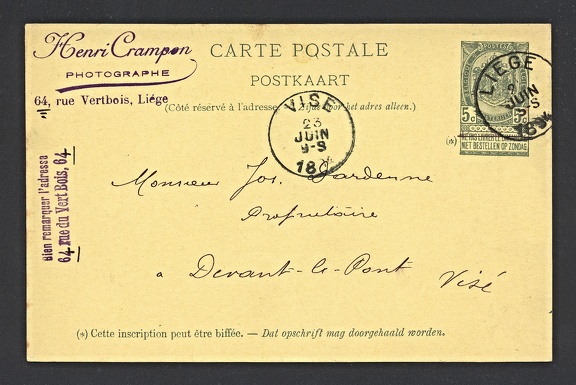 Henri Crampon
PHOTOGRAPHE
64, rue Vertbois, Liége
CARTE POSTALE
POSTKAART
(Côté réservé à l'adresse. — Zijde voor het adres alleen.)
VISÉ
23
JUIN
9-S
18
LIÉGE
JUIN
S
POSTES
5c
5c
NE PAS LIVRER LE DIMANCHE
NIET BESTELLEN OP ZONDAG
(*)
Bien remarquer l'adresse
64 rue du Vert Bois, 64
Monsieur Jos. Dardenne
Propriétaire
a Devant-le-Pont Visé
(*) Cette inscription peut être biffée. — Dat opschrift mag doorgehaald worden.